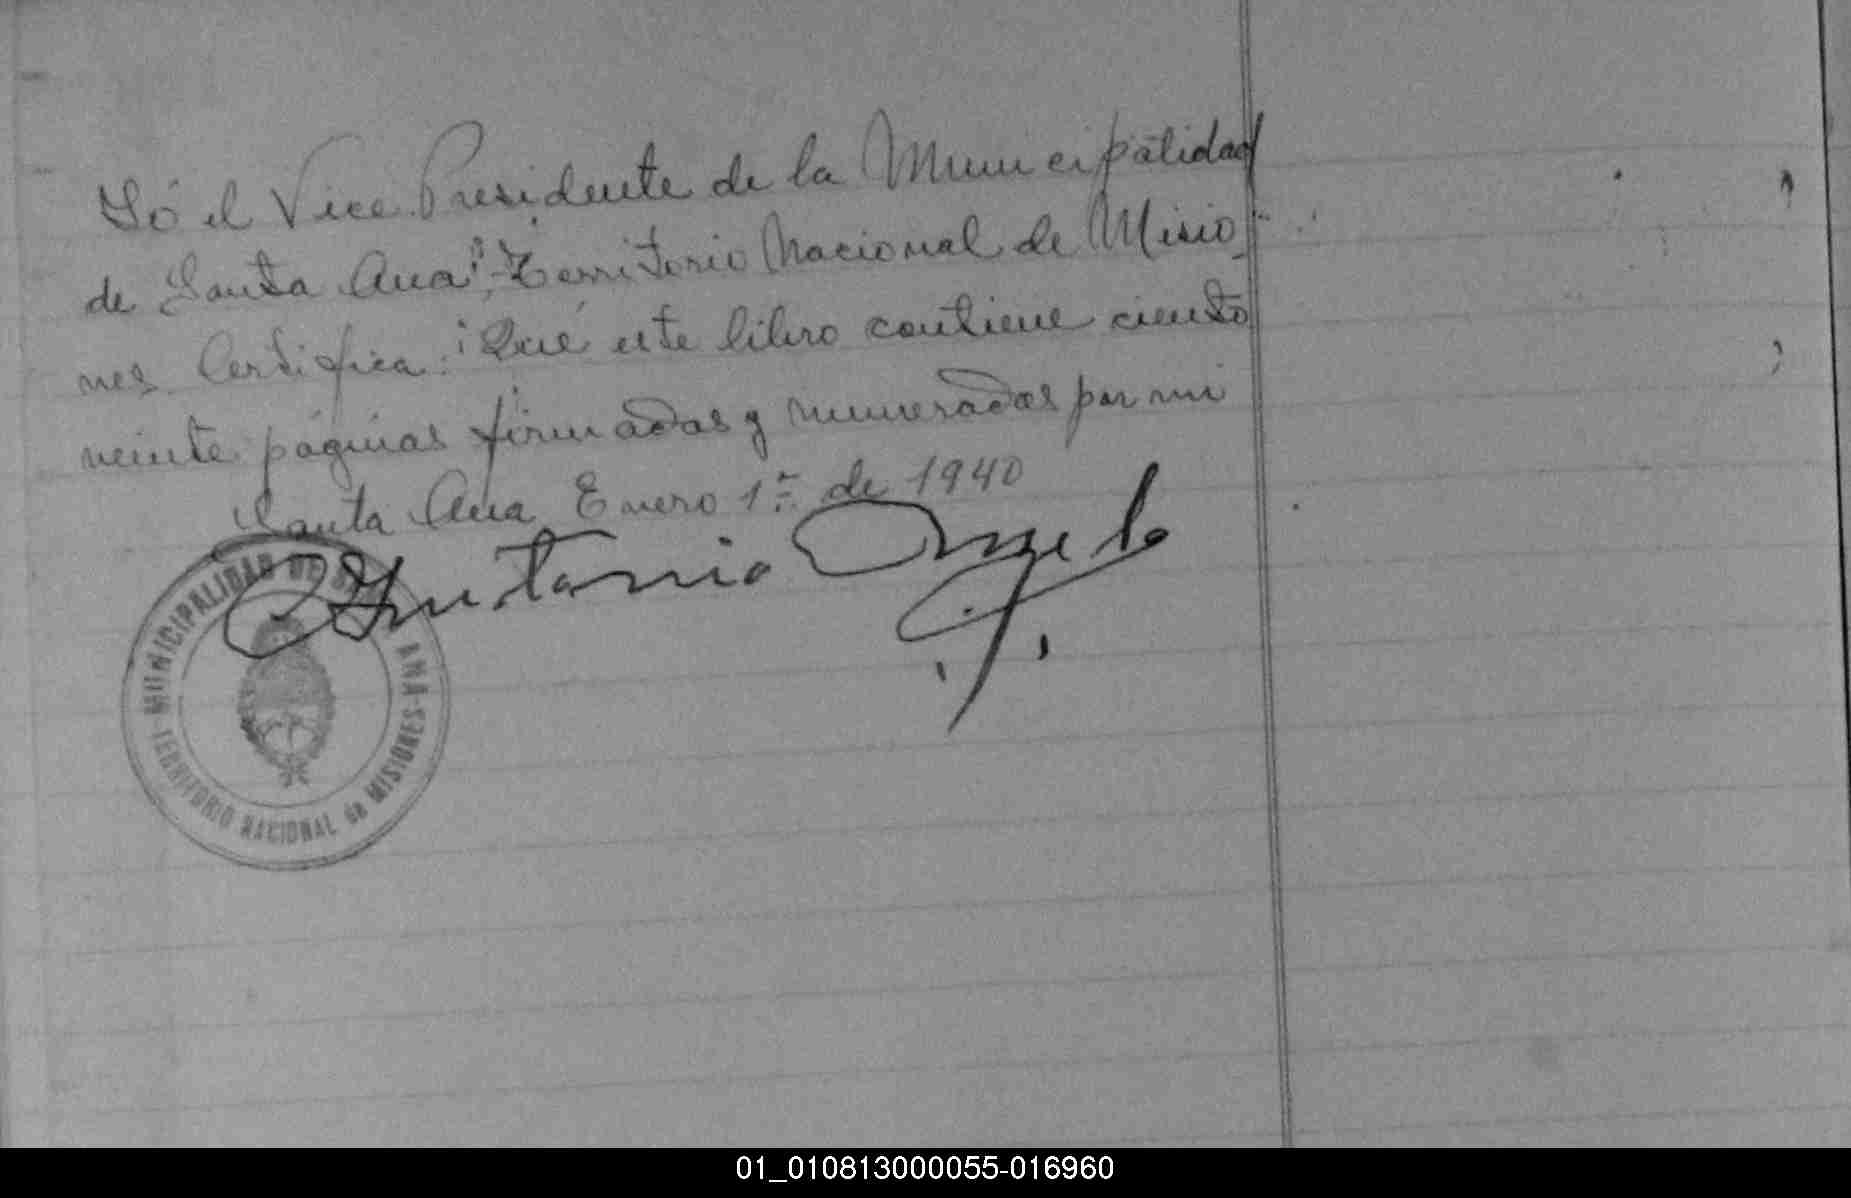 Yó el Vice Presidente de la Municipalidad
de Santa Ana, Territorio Nacional de Misio-
nes Certifica: Qué este libro contiene ciento
veinte páginas firmadas y numeradas por mi
Santa Ana Enero 1º de 1940
Antonio
MUNICIPALIDAD DE ANA - TERRITORIO NACIONAL de MISIONES -
01_010813000055-016960